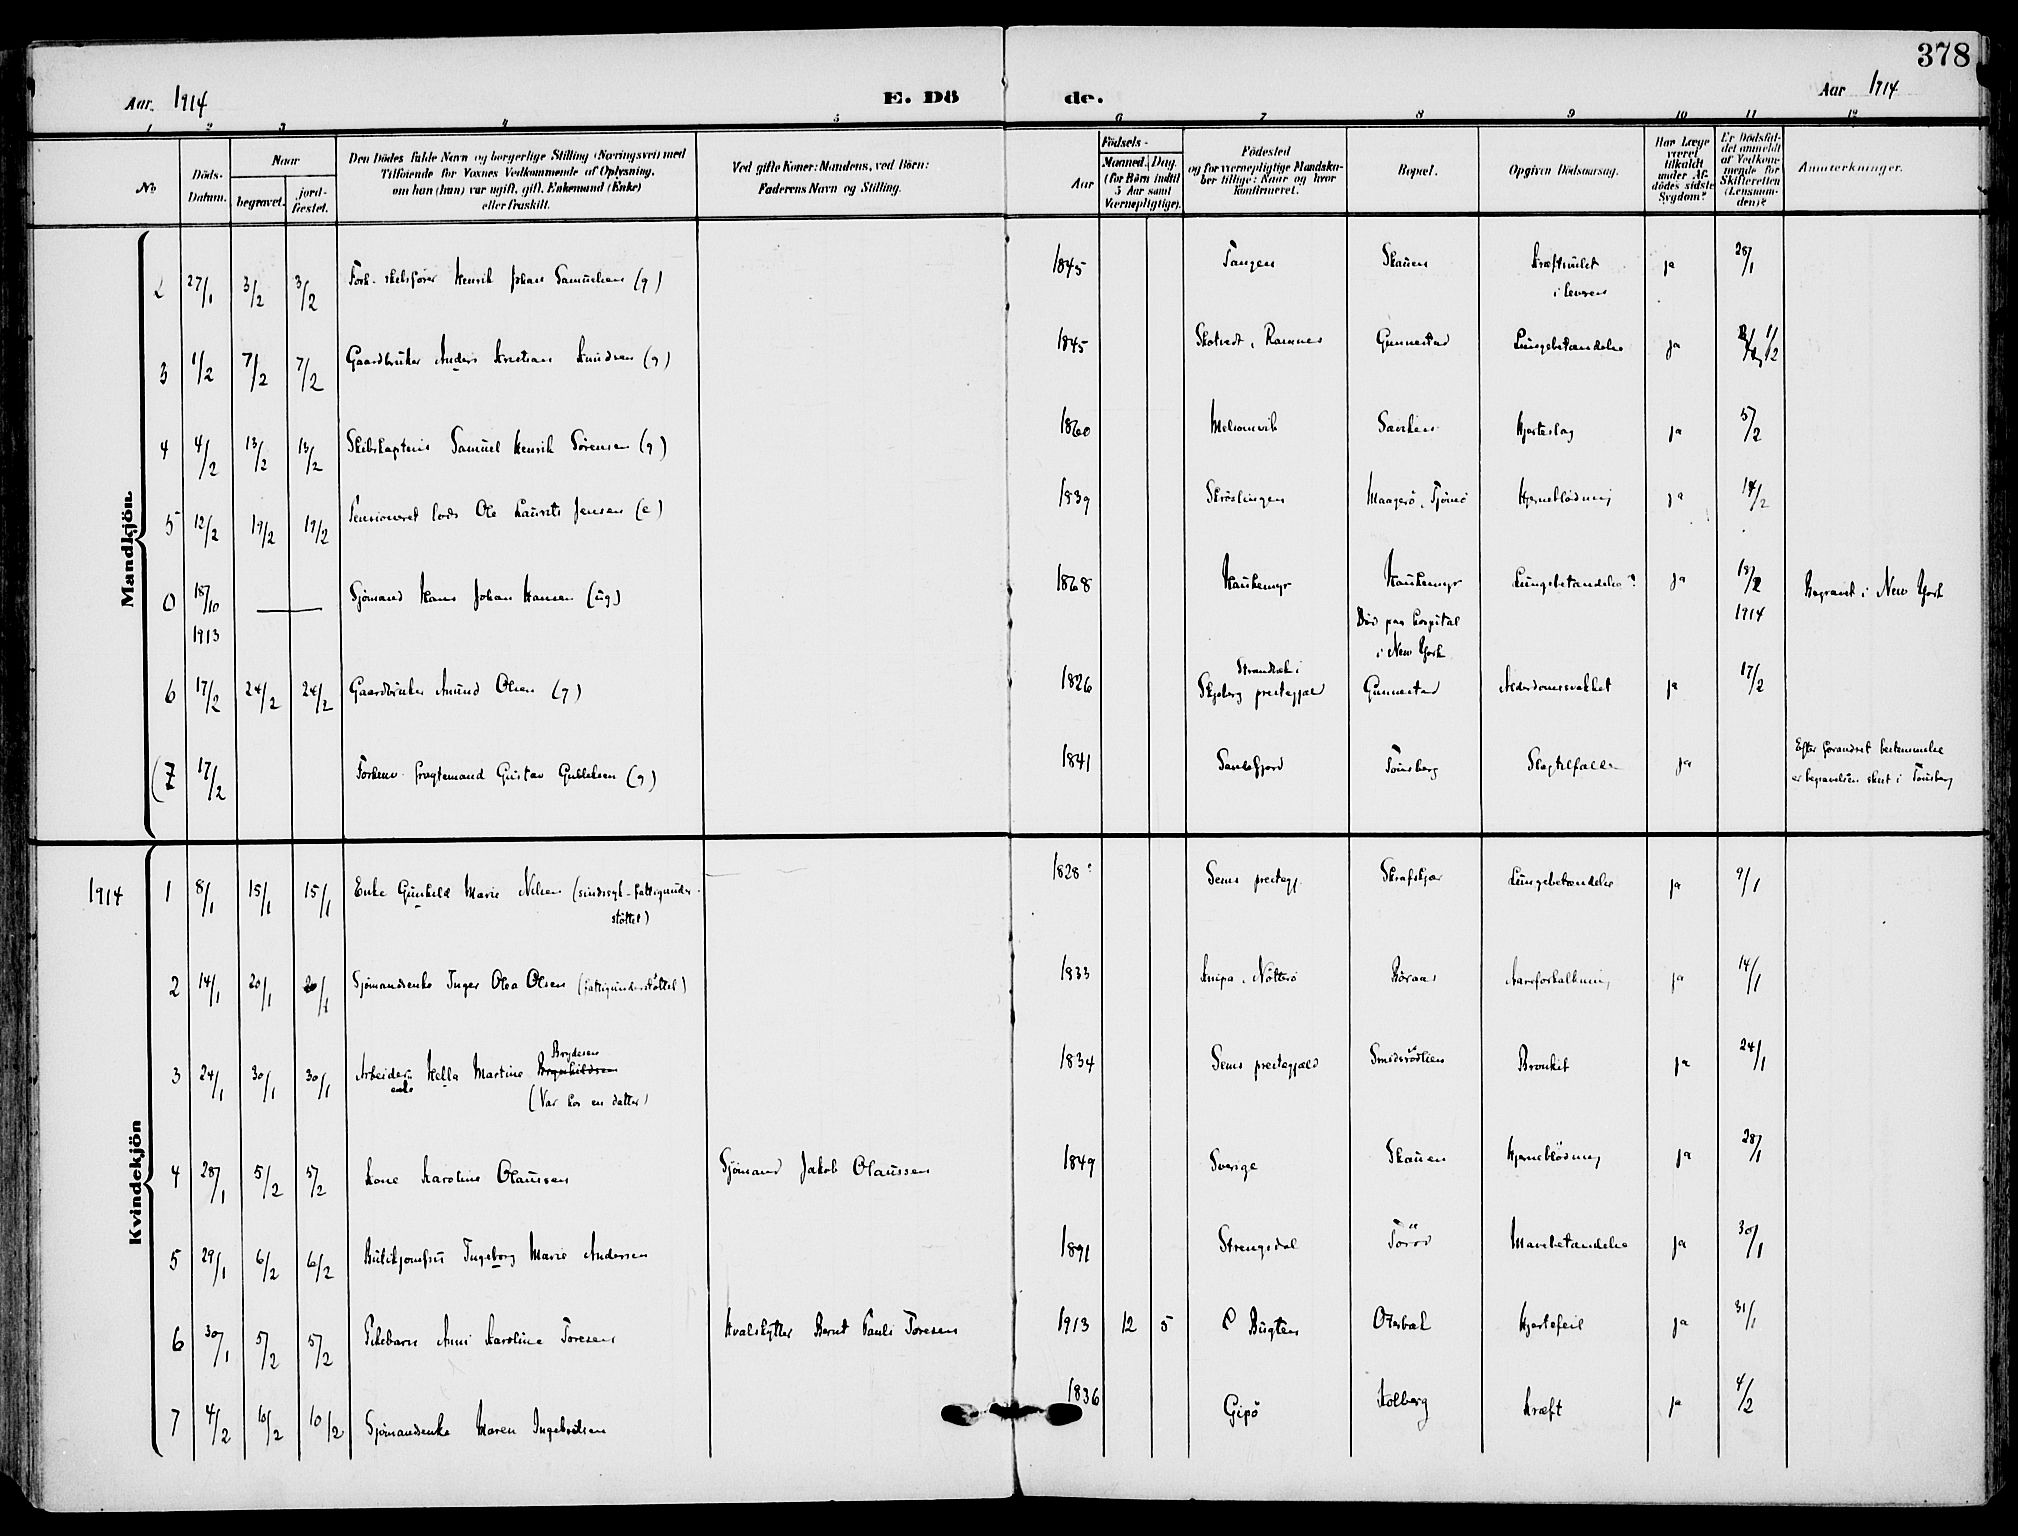 378
Aar 1914 E. Dö de. Aar 1914
1 2 3 4 5 6 7 8 9 10 11 12
No
Döds-Datum.
Naar
begravet. jord-fæstet.
Den Dödes fulde Navn og borgerlige Stilling (Næringsvei) med
Tilföiende for Voxnes Vedkommende af Oplysning,
om han (hun) var ugift, gift, Enkemand (Enke)
eller fraskilt.
Ved gifte Koner: Mandens, ved Börn:
Faderens Navn og Stilling.
Födsels-
Aar Maaned. Dag.
(for Börn indtil
5 Aar samt
Værnepligtige).
Födested
og for værnepligtige Mandska-
ber tillige: Naar og hvor
konfirmeret.
Bopæl.
Opgiven Dödsaarsag.
Har Læge
været
tilkaldt
under Af-
dödes sidste
Sygdom?
Er Dödsfal-
det anmeldt
af Vedkom-
mende for
Skifteretten
(Lensman-
den)?
Anmærkninger.
Mandkjön
2 27/1 3/2 3/2 Henrik Johan Samuelsen (g) 1845 Tangen Skauen Kræftsvulst i leveren ja 28/1
3 1/2 7/2 7/2 Gaardbruker Anders Kristian Knudsen (g) 1845 Ramnes Gunnestad Lungebetændelse ja 1/2
4 4/2 13/2 13/2 Skibskaptein Samuel Henrik Sörensen (g) 1860 Melsomvik Hjerteslag ja 5/2
5 12/2 19/2 19/2 Pensioneret lods Ole Laurits Jensen (e) 1839 Maagerö, Tjömö Hjerneblödning ja 14/2
0 18/10 1913 — Sjömand Hans Johan Hansen (ug) 1868 Haukemyr Haukemyr Död paa hospital i New York Lungebetændelse? ja 18/2 1914 Begravet i New York
6 17/2 24/2 24/2 Gaardbruker Amund Olsen (g) 1826 Skjeberg prestegjæld Gunnestad Alderdomssvakhet ja 17/2
(7 17/2 Forhenv. fragtemand Gustav Gulliksen (g) 1841 Sandefjord Tönsberg Slagtilfælde ja Efter forandret bestemmelse
er begravelsen skeet i Tönsberg
Kvindekjön
1914 1 8/1 15/1 15/1 Enke Gunhild Marie Nilsen (sindssyk - fattigunder-
stöttet) 1828? Sems prestegj. Lungebetændelse ja 9/1
2 14/1 20/1 20/1 Sjömandsenke Inger Olea Olsen (fattigunderstöttet) 1833 Knipa, Nötterö Röraas Aareforkalkning ja 14/1
3 24/1 30/1 30/1 Arbeider-
enke Hella Martine Brydesen
(Var hos en datter) 1834 Sems prestegjæld Smidsrödlien Bronkit ja 24/1
4 28/1 5/2 5/2 Kone Karoline Olaussen Sjömand Jakob Olaussen 1849 Sverige Skauen Hjerneblödning ja 28/1
5 29/1 6/2 6/2 Butikjomfru Ingeborg Marie Andersen 1891 Strengsdal Töröd Mavebetændelse ja 30/1
6 30/1 5/2 5/2 Pikebarn Anni Karoline Toresen Hvalskytter Bernt Pauli Toresen 1913 12 5 Bugten Oterbæk Hjertefeil ja 31/1
7 4/2 10/2 10/2 Sjömandsenke Maren Ingebretsen 1836 Gipö Holberg Kræft ja 4/2